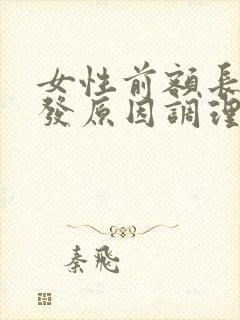 女性前額長
發原因調理
秦飛